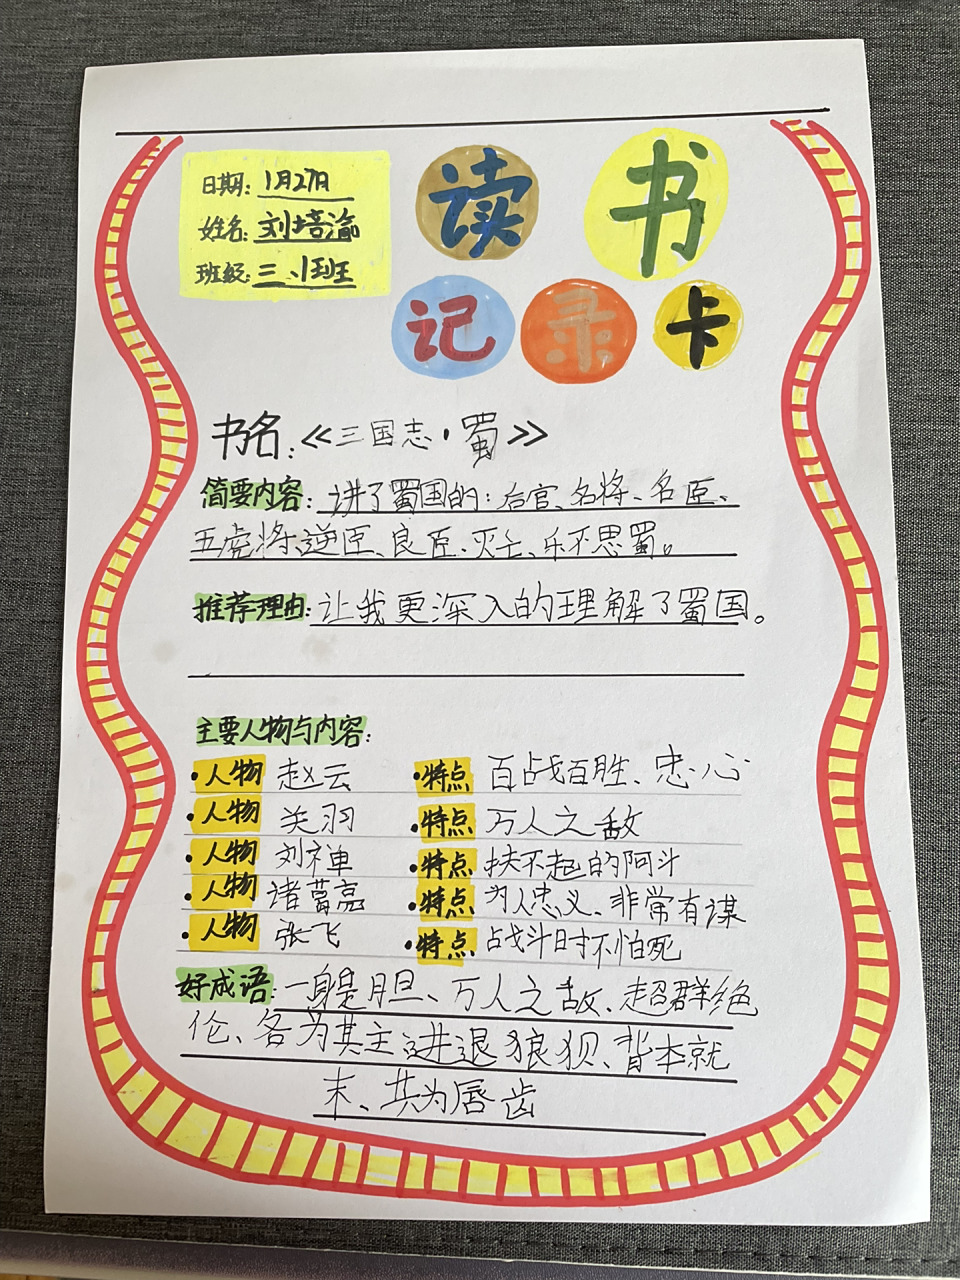 日期: 1月27日
姓名: 刘培渝
班级: 三.小班
读书
记录卡
书名:《三国志·蜀》
简要内容: 讲了蜀国的:后宫、名将、名臣、
五虎将、逆臣、良臣、灭亡、乐不思蜀。
推荐理由: 让我更深入的理解了蜀国。
主要人物与内容:
·人物 赵云 ·特点 百战百胜、忠心
·人物 关羽 ·特点 万人之敌
·人物 刘禅 ·特点 扶不起的阿斗
·人物 诸葛亮 ·特点 为人忠义、非常有谋
·人物 张飞 ·特点 战斗时不怕死
好成语: 一身是胆、万人之敌、超群绝
伦、各为其主、进退狼狈、背本就
末、共为唇齿